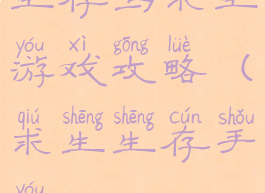 生存与求生
yóu xì gōng lüè
游戏攻略（
qiú shēng shēng cún shǒu
求生生存手
yóu